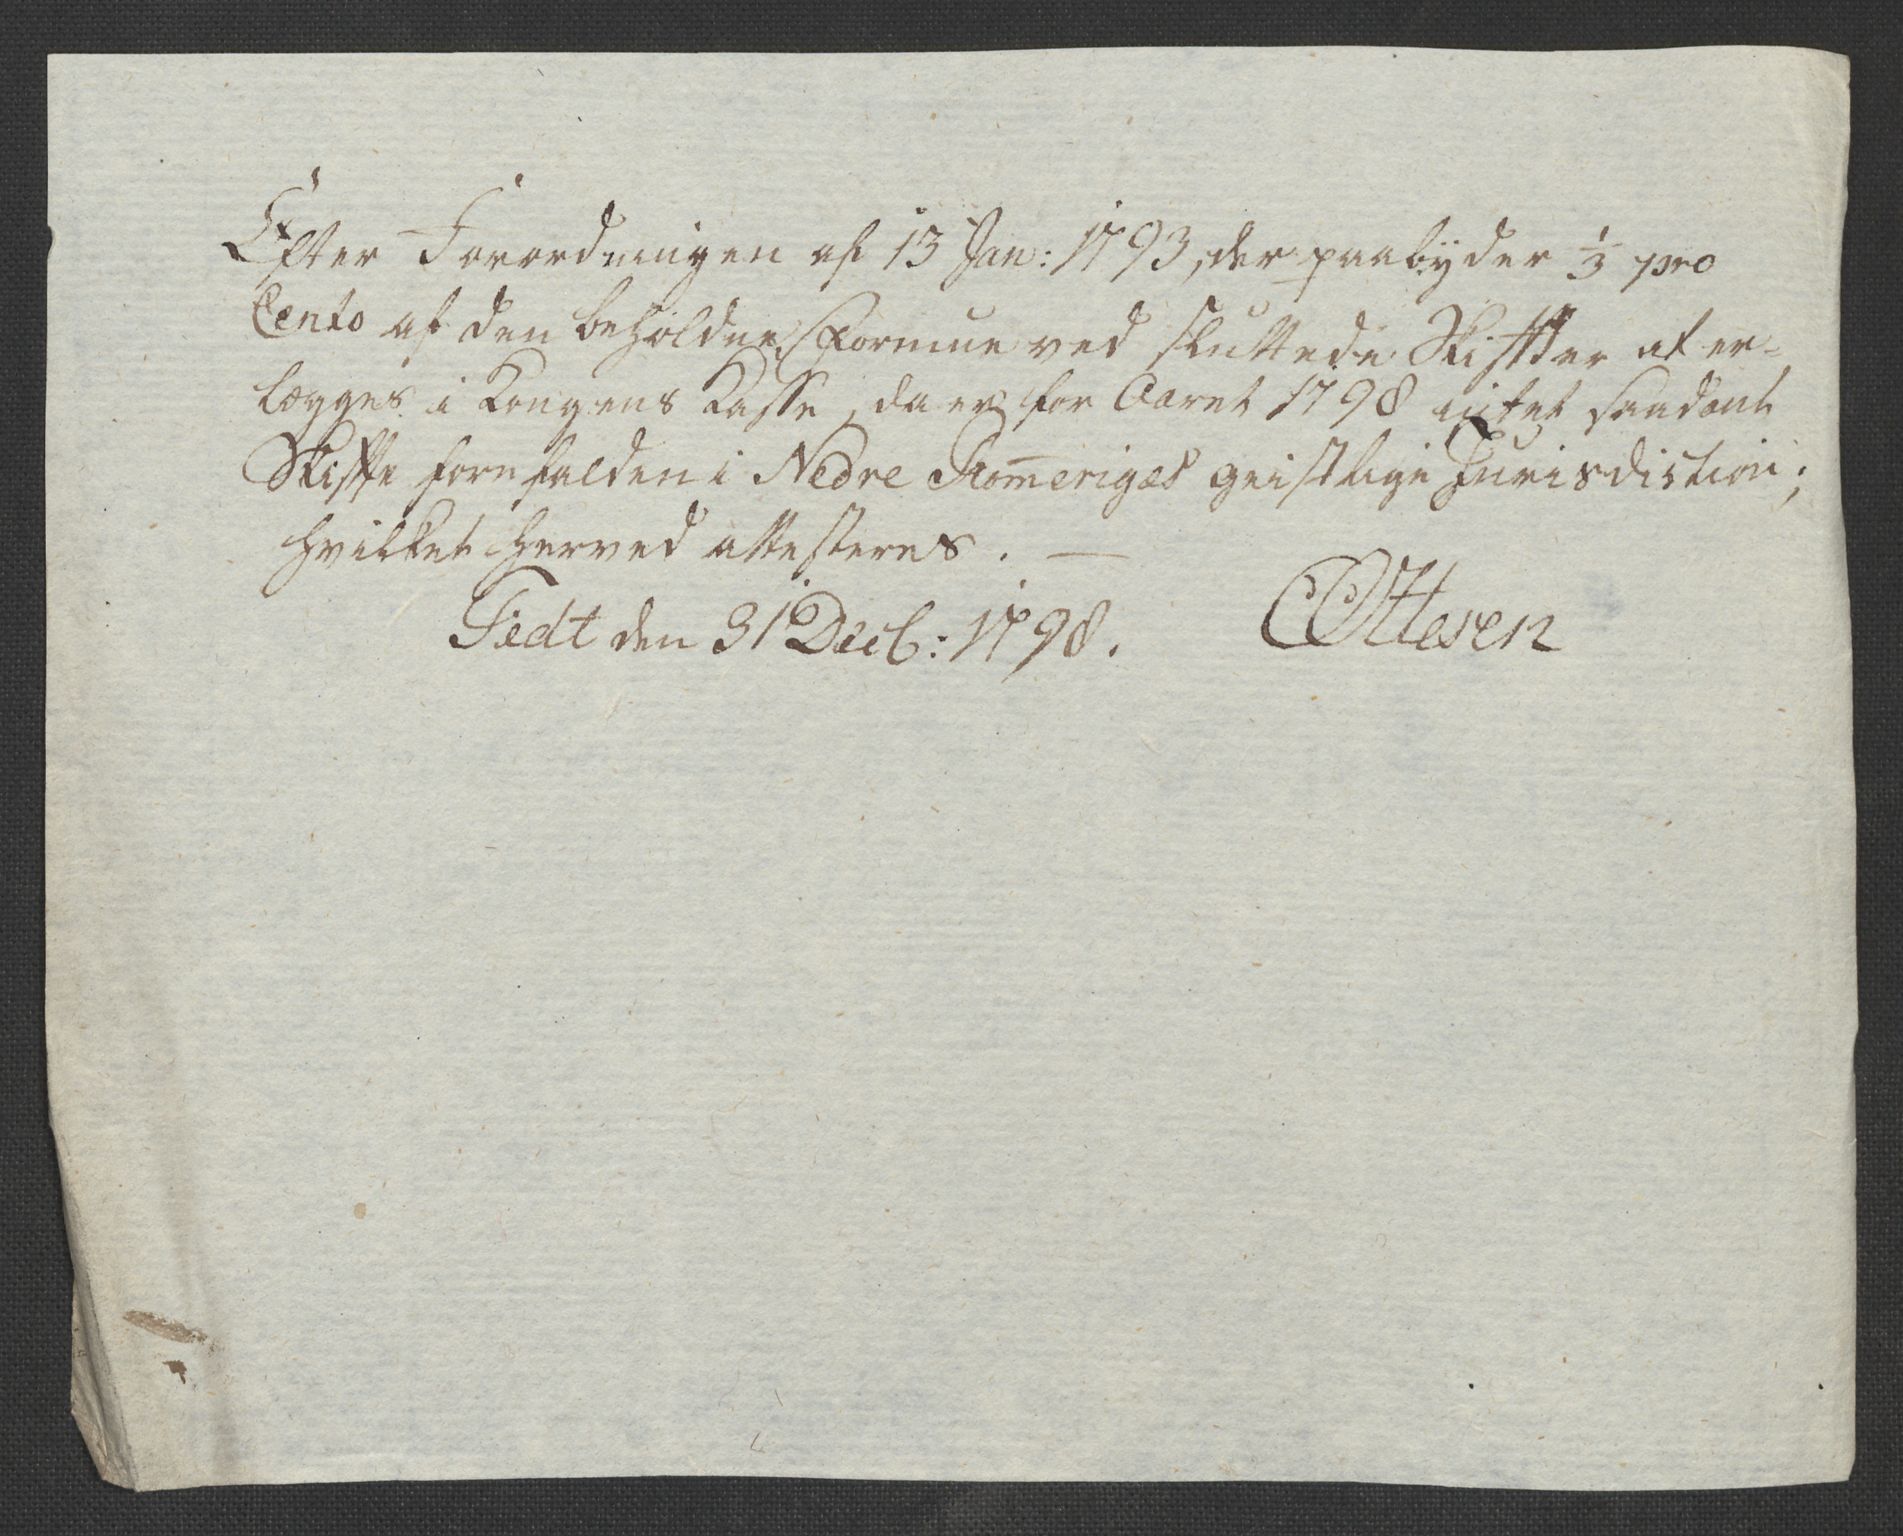 Efter Forordningen af 13 Jan: 1793, der paabÿder ⅓ pro
Cento af den beholdne Formue ved sluttede Skiftter at er-
lægges i Kongens Kasse, da er for Aaret 1798 intet saadant
Skifte forefalden i Nedre Rom̅eriges geistlige Jurisdiction;
hvilket herved attesteres. —
Fedt den 31 Decb: 1798. COttesen